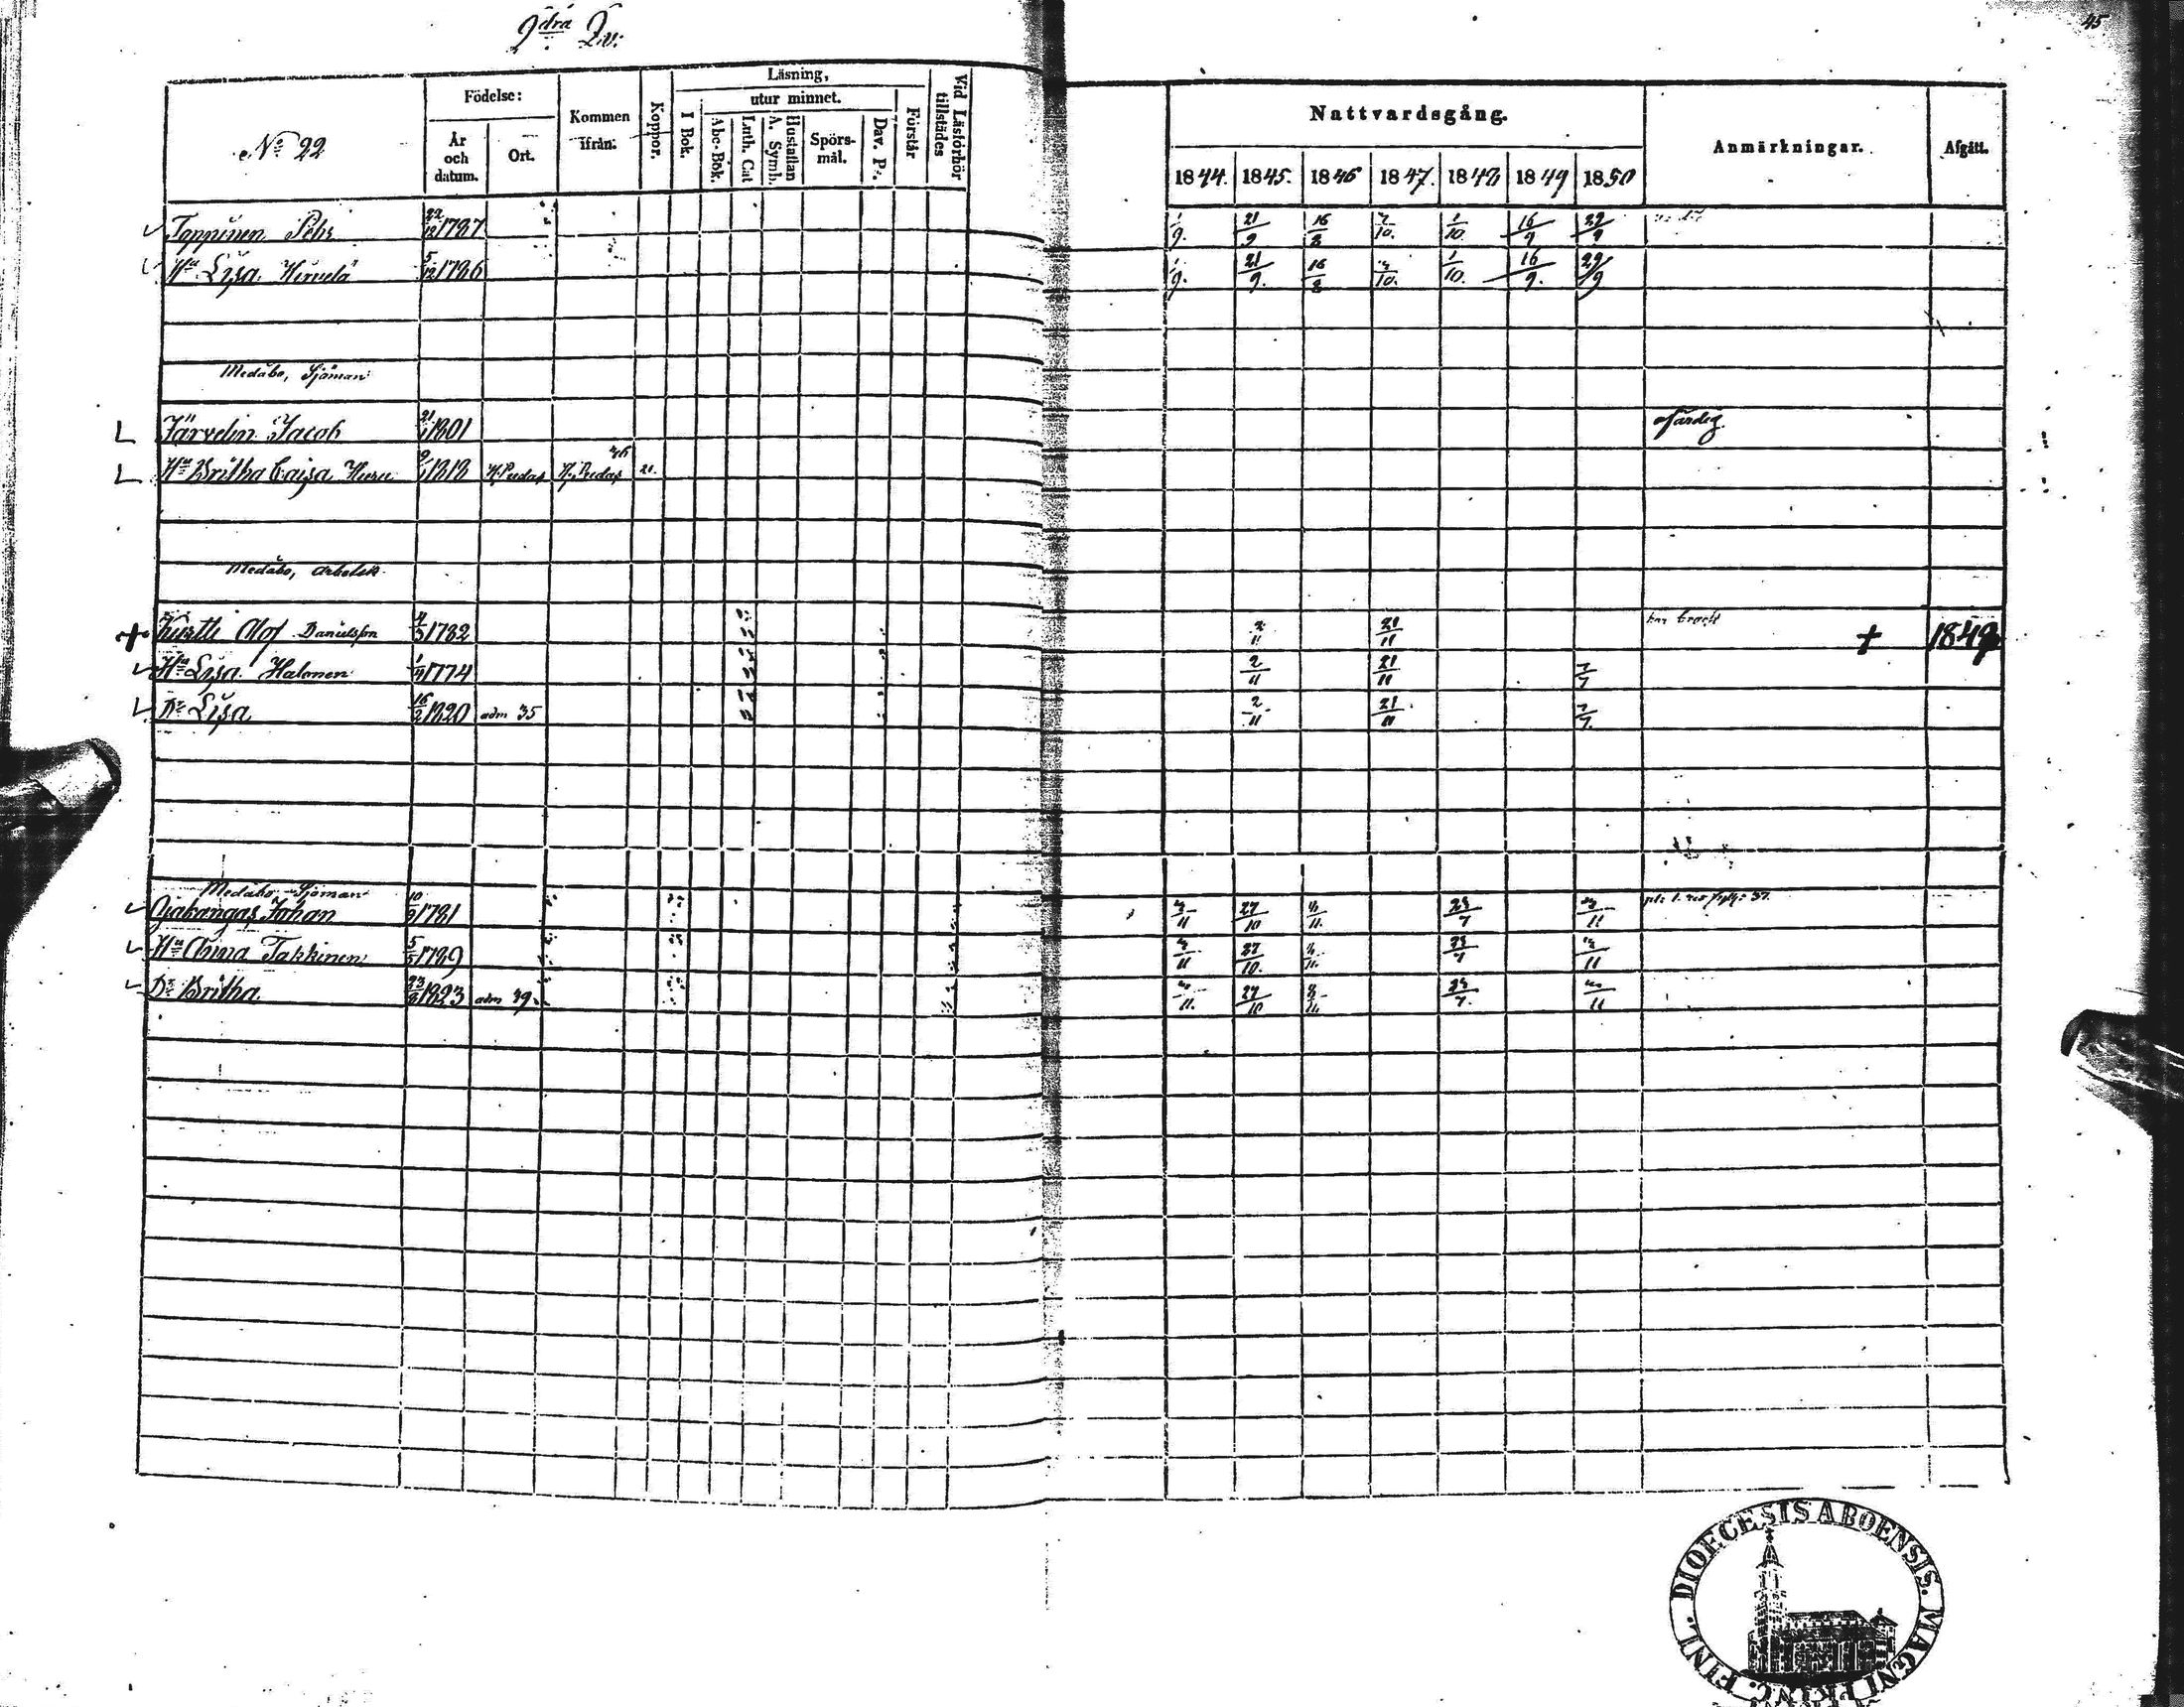 2dra Qv.
45
No 22
Födelse:
År och datum.
Ort.
Kommen ifrån:
Koppor.
Läsning,
I Bok.
utur minnet.
Abc-Bok.
Luth. Cat
Hustaflan A. Symb.
Spörsmål.
Dav. Ps.
Förstår
Vid Läsförhör tillstädes
Nattvardsgång.
1844. 1845. 1846 1847. 1848 1849 1850
Anmärkningar.
Afgått.
Toppinen Pehr 22/12 1797 1/9. 21/9 16/8 /10. 1/10 16/9 29/9
Hu Lisa Hirvelä 5/12 1796 1/9. 21/9. 16/8 /10. 1/10. 16/9. 29/9
Medåbo, Sjöman
Järvelin Jacob 21/1 1801 ofärdig
Hu Britha Caisa 9/1 1818 46 21.
Medåbo, Arbetsk.
Kurtti Olof Danielsson 4/3 1782 2/11 21/11 har bråck + 1849
Hu Lisa Halonen 1/4 1774 2/11 21/11 7/7
Dr Lisa 16/2 1820 adm 35 2/11 21/11 7/7
Medåbo Sjöman
Ojakangas Johan 10/9 1781 3/11 27/10 23/7 3/11
Hu Anna Takkinen 5/5 1789 3/11 27/10. 23/7 3/11
Dr Britha 23/8 1823 adm 39. 27/10 23/7.
DIOECESIS ABOENSIS. MAGNI PRINC. FINL.